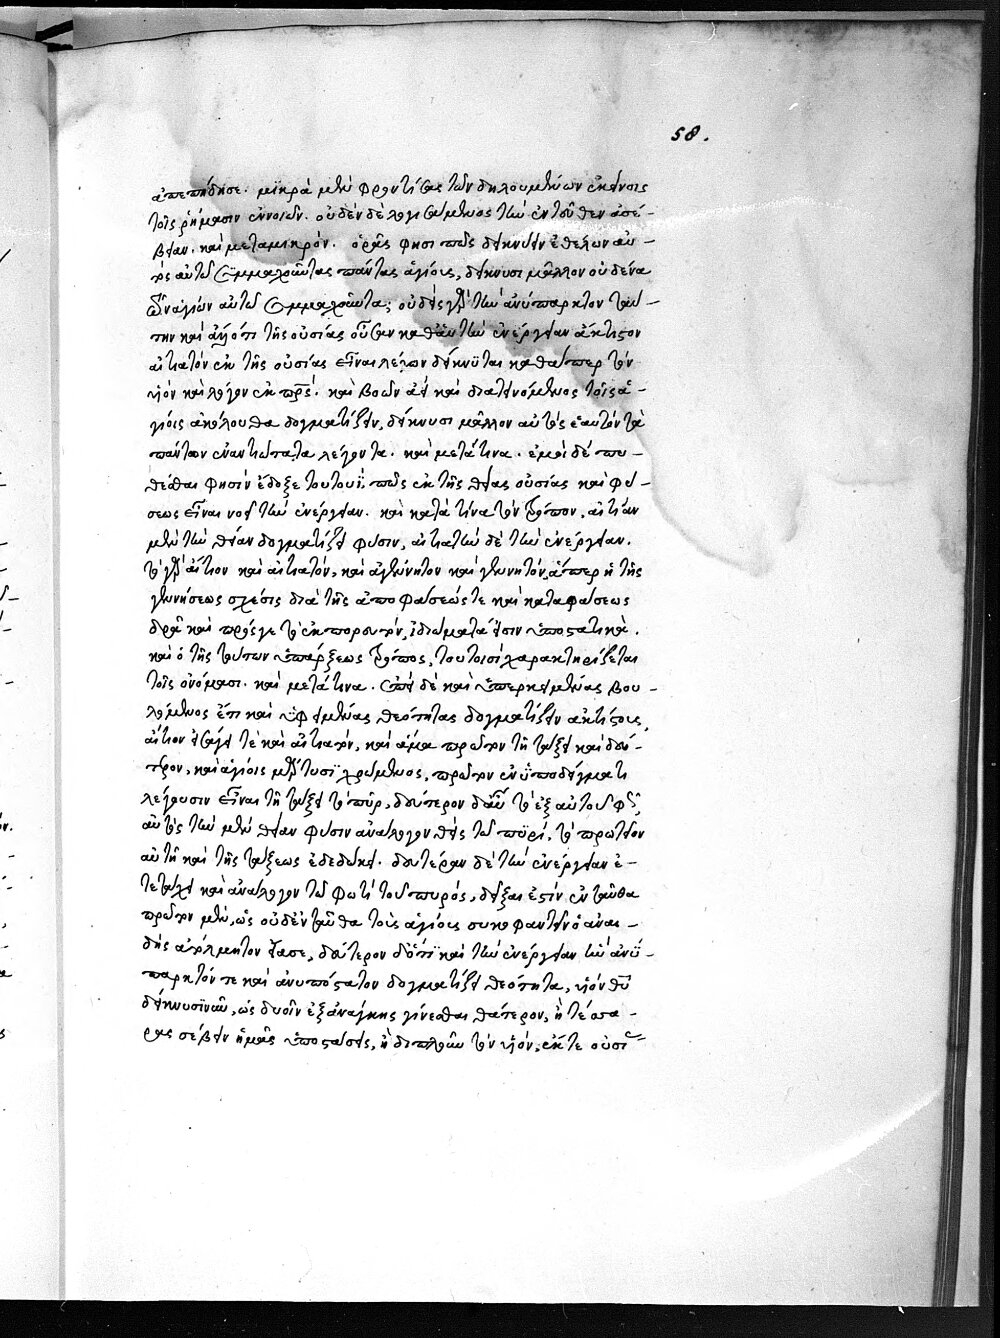 58.
ἀπεπήδησε. μικρὰ μὲν φροντίσας τῶν δηλουμένων ἐκείνοις
τοῖς ῥήμασιν ἐννοιῶν. οὐδὲν δὲ λογισάμενος τὴν ἐντεῦθεν ἀσέ-
βειαν. καὶ μεταμικρόν. ὁρᾷς φησι πῶς δεικνύειν ἐθέλων αὐ-
τὸς αὑτῷ συμμαχοῦντας πάντας ἁγίοις, δείκνυσι μᾶλλον οὐδένα
τῶν ἁγίων αὐτῷ συμμαχοῦντα; οὐδεὶς γὰρ τὴν ἀνύπαρκτον ταύ-
την καὶ ἀντὶ τῆς οὐσίας οὖσαν καθ' αὑτὴν ἐνέργειαν ἄκτιστον
αἰτιατὸν ἐκ τῆς οὐσίας εἶναι λέγων δείκνυται καθάπερ τὸν
υἱὸν καὶ λόγον ἐκ πρς. καὶ βοῶν ἀεὶ καὶ διατεινόμενος τοῖς ἁ-
γίοις ἀκόλουθα δογματίζειν, δείκνυσι μᾶλλον αὐτὸς ἑαυτὸν τὰ
πάντων ἐναντιώτατα λέγοντα. καὶ μετά τινα. ἐμοὶ δὲ πυ-
θέσθαι φησὶν ἔδοξε τουτουΐ, πῶς ἐκ τῆς θείας οὐσίας καὶ φύ-
σεως εἶναι νοεῖ τὴν ἐνέργειαν. καὶ κατὰ τίνα τὸν τρόπον, αἰτίαν
μὲν τὴν θείαν δογματίζει φύσιν, αἰτιατὴν δὲ τὴν ἐνέργειαν.
τὸ γὰρ αἴτιον καὶ αἰτιατόν, καὶ ἀγέννητον καὶ γεννητόν, ἅπερ ἡ τῆς
γεννήσεως σχέσις διὰ τῆς ἀποφάσεώς τε καὶ καταφάσεως
δρᾷ καὶ πρόσγε τὸ ἐκπορευτόν, ἰδιώματά εἰσιν ὑποστατικά.
καὶ ὁ τῆς τούτων ὑπάρξεως τρόπος, τουτοισὶ χαρακτηρίζεται
τοῖς ὀνόμασι. καὶ μετά τινα. ἐπεὶ δὲ καὶ ὑπερκειμένας βου-
λόμενος ἔτι καὶ ὑφειμένας θεότητας δογματίζειν ἀκτίστοις,
αἴτιον εἰσάγει τε καὶ αἰτιατόν, καὶ ἅμα πρῶτον τῇ τάξει καὶ δεύ-
τερον, καὶ ἁγίοις μάρτυσι χρώμενος, πρῶτον ἐν ὑποδείγματι
λέγουσιν εἶναι τῇ τάξει τὸ πῦρ, δεύτερον δ' αὖ τὸ ἐξ αὐτοῦ φῶς,
αὐτὸς τὴν μὲν θείαν φύσιν ἀνάλογον θεὶς τῷ πυρί, τὸ πρῶτον
αὐτῇ καὶ τῆς τάξεως ἐδεδώκει. δευτέραν δὲ τὴν ἐνέργειαν ἐ-
τετάχει καὶ ἀνάλογον τῷ φωτὶ τοῦ πυρός, δεῖξαι ἔστιν ἐνταῦθα
πρῶτον μέν, ὡς οὐδ' ἐνταῦθα τοὺς ἁγίους συκοφαντεῖν ὁ ἀναι-
δὴς ἀτόλμητον εἴασε, δεύτερον δ' ὅτι καὶ τὴν ἐνέργειαν τὴν ἀνύ-
παρκτόν τε καὶ ἀνυπόστατον δογματίζει θεότητα, υἱὸν θῦ
δείκνυσιν αὖ, ὡς δυοῖν ἐξανάγκης γίνεσθαι θάτερον, ἢ τέσσα-
ρας σέβειν ἡμᾶς ὑποστάσεις, ἢ διπλοῦν τὸν υἱόν, ἔκ τε οὐσί-